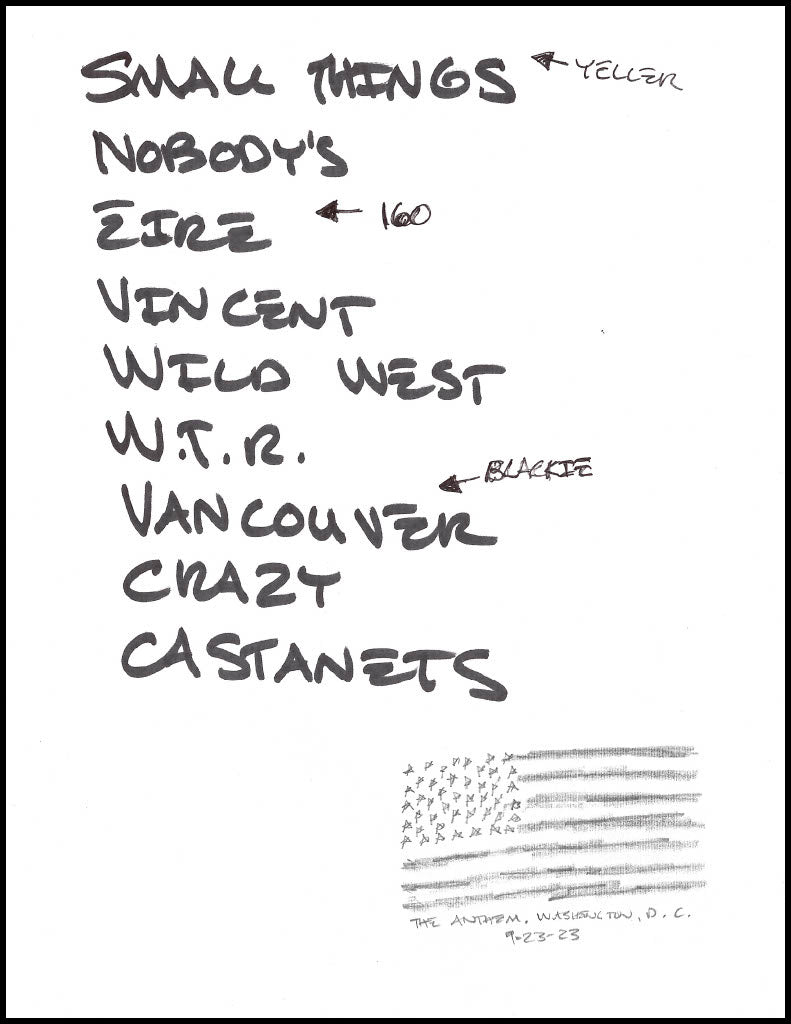 SMALL THINGS ← YELLER
NOBODY'S
EIRE ← 160
VINCENT
WILD WEST
W.T.R.
← BLACKIE
VANCOUVER
CRAZY
CASTANETS
THE ANTHEM, WASHINGTON, D.C.
9-23-23